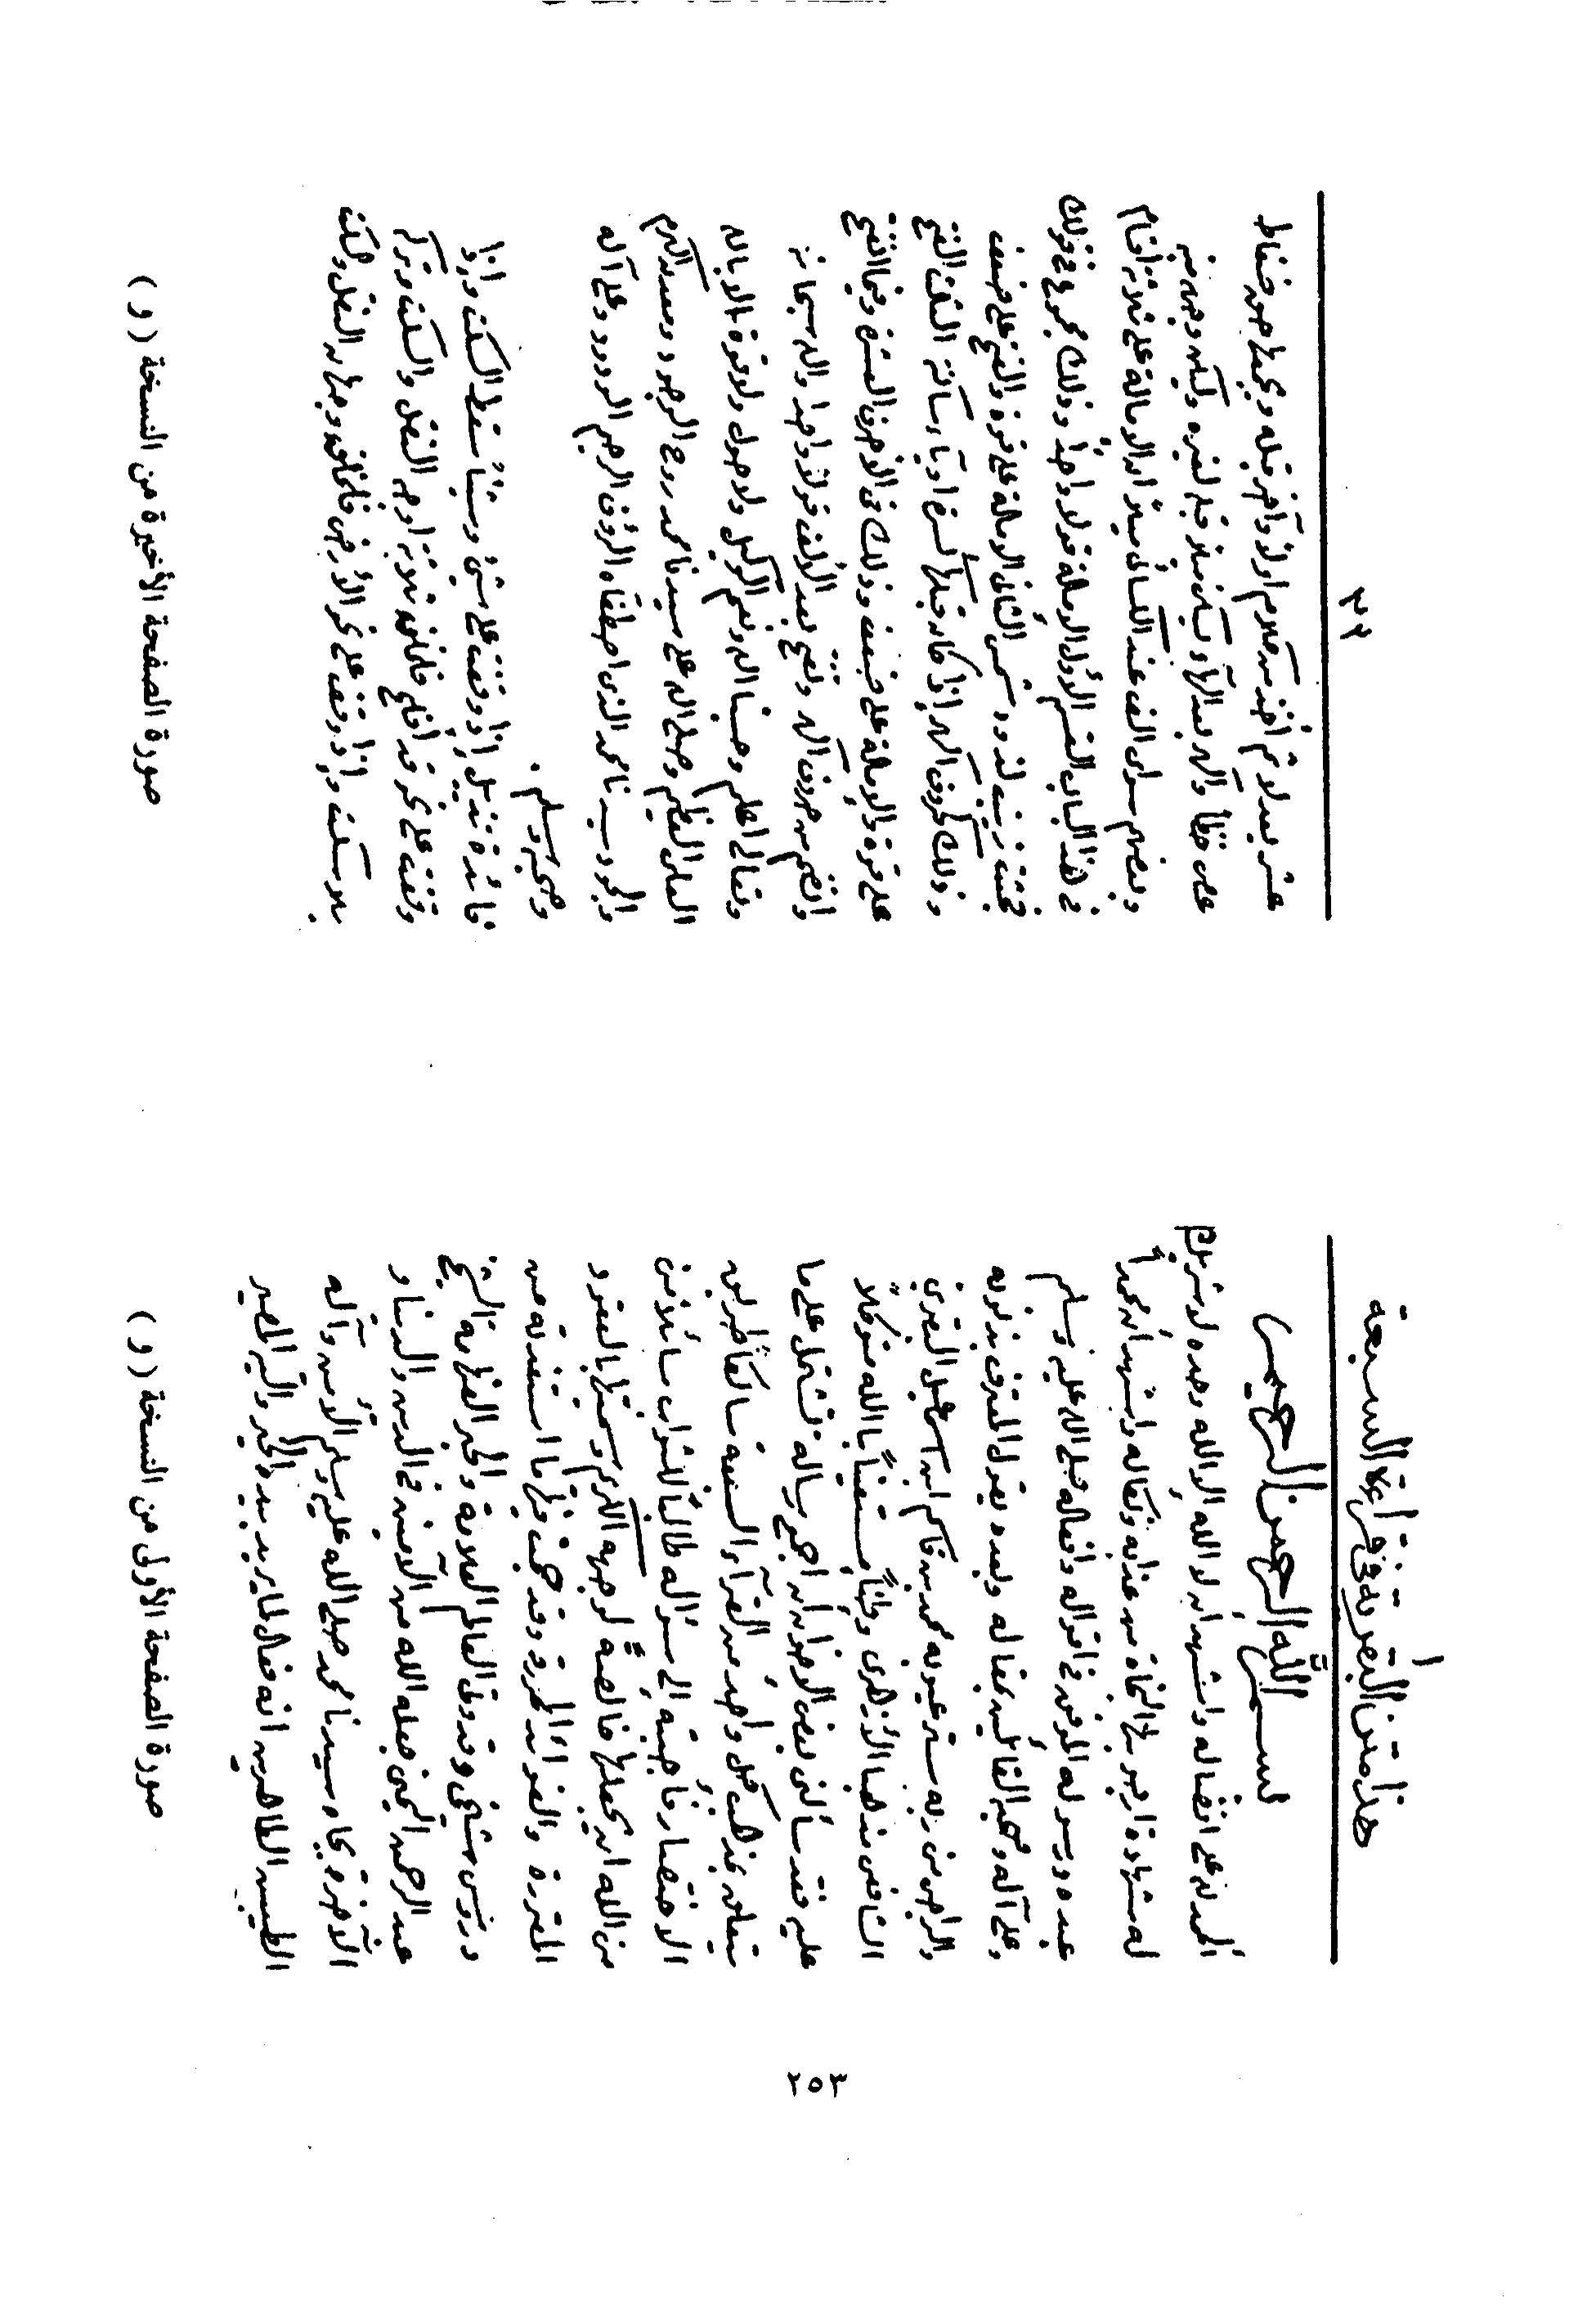 هذا متن البقرية في قرأة السبعة
بسم الله الرحمن الرحيم
الحمد لله على افضاله واشهد أن لا الله إلا الله وحده لا شريك
له شهادة ارجو بها النجاة من عذابه ونكاله واشهد أن محمداً
عبده ورسوله الموفق في اقواله وافعاله صلى الله عليه وسلم
وعلى آله وصحبه القائلين بمقاله وبعده يقول المعترف بذنوبه
والراجي من ربه ستر عيوبه محمد بن قاسم ابن اسماعيل البقري
الشافعي مذهباً الأزهري وطناً مستعيناً بالله متوكلاً
عليه فقد سألني بعض الاخوان أن اجمع رسالة تشتمل على ما
يتعلق بمذهب كل واحد من القرآء السبعة سالكاً طريق
الاختصار فأجبته إلى سؤاله طالباً للثواب سائلاً من
من الله ان يجعلها خالصة لوجهه الكريم وسميتها بالعقود
المقررة والفوائد المحررة وقد جمعت فيها ما استفدته من
دروس شيخي وقدوتي العالم العلامة والحبر الفهامة الشيخ
عبد الرحمن اليمني جعله الله من الآمنين في الدين والدنيا و
الآخرة بجاه سيدنا محمد صلى الله عليه وسلم الأمين وآله
الطيبين الطاهرين انه فعال لما يريد بيده الخير وإليه المصير
صورة الصفحة الأولى من النسخة (و)
٣٣
عشر بعد لا ثم أخذ من كلام اولاً وآخر قبله ويجمعها حق ضغاط
عص خظا
وبعضهم سوى الف عند الكسائي ميلا
في هذا الباب القسم الأول الإمالة قولا واحداً وذلك مجموع في قولك
فجثت زينب لذود شمس الثاني الإمالة على قوة والفتح على ضعف
وذلك حروف اكهر إذا كان قبلها كسرة او ياء ساكنة الثالث الفتح
على قوة والإمالة على ضعف وذلك في الأحرف العشرة
وتفتح بعد الألف قولاً واحدا والله سبحانه
وتعالى اعلم وحسبنا الله ونعم الوكيل ولا حول ولا قوة الا بالله
العلي العظيم وصلى الله على سيدنا محمد روح الوجود ومعدن الكرم
والجود سيدنا محمد الذي اصطفاه الرؤف الرحيم الودود وعلى آله
وصحبه وسلم.
فائدة تذييل إذا وقفت على شيئ وشيئاً سقط السكت وإذا
وقفت على نحو قد أفلح فلخلف ثلاثة اوجه النقل والسكت وتركه
بلا سكت وإذا وقف على نحو الأرض فلخلف وجهان النقل والسكت
صورة الصفحة الأخيرة من النسخة (و)
٢٥٣